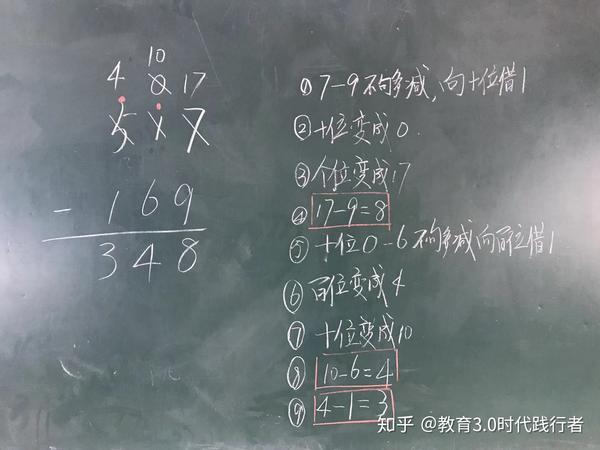 10
4 0 17
5 1 7
- 1 6 9
3 4 8
① 7-9不够减,向十位借1
② 十位变成0.
③ 个位变成17
④ 17-9=8
⑤ 十位0-6不够减向百位借1
⑥ 百位变成4
⑦ 十位变成10
⑧ 10-6=4
⑨ 4-1=3
知乎 @教育3.0时代践行者